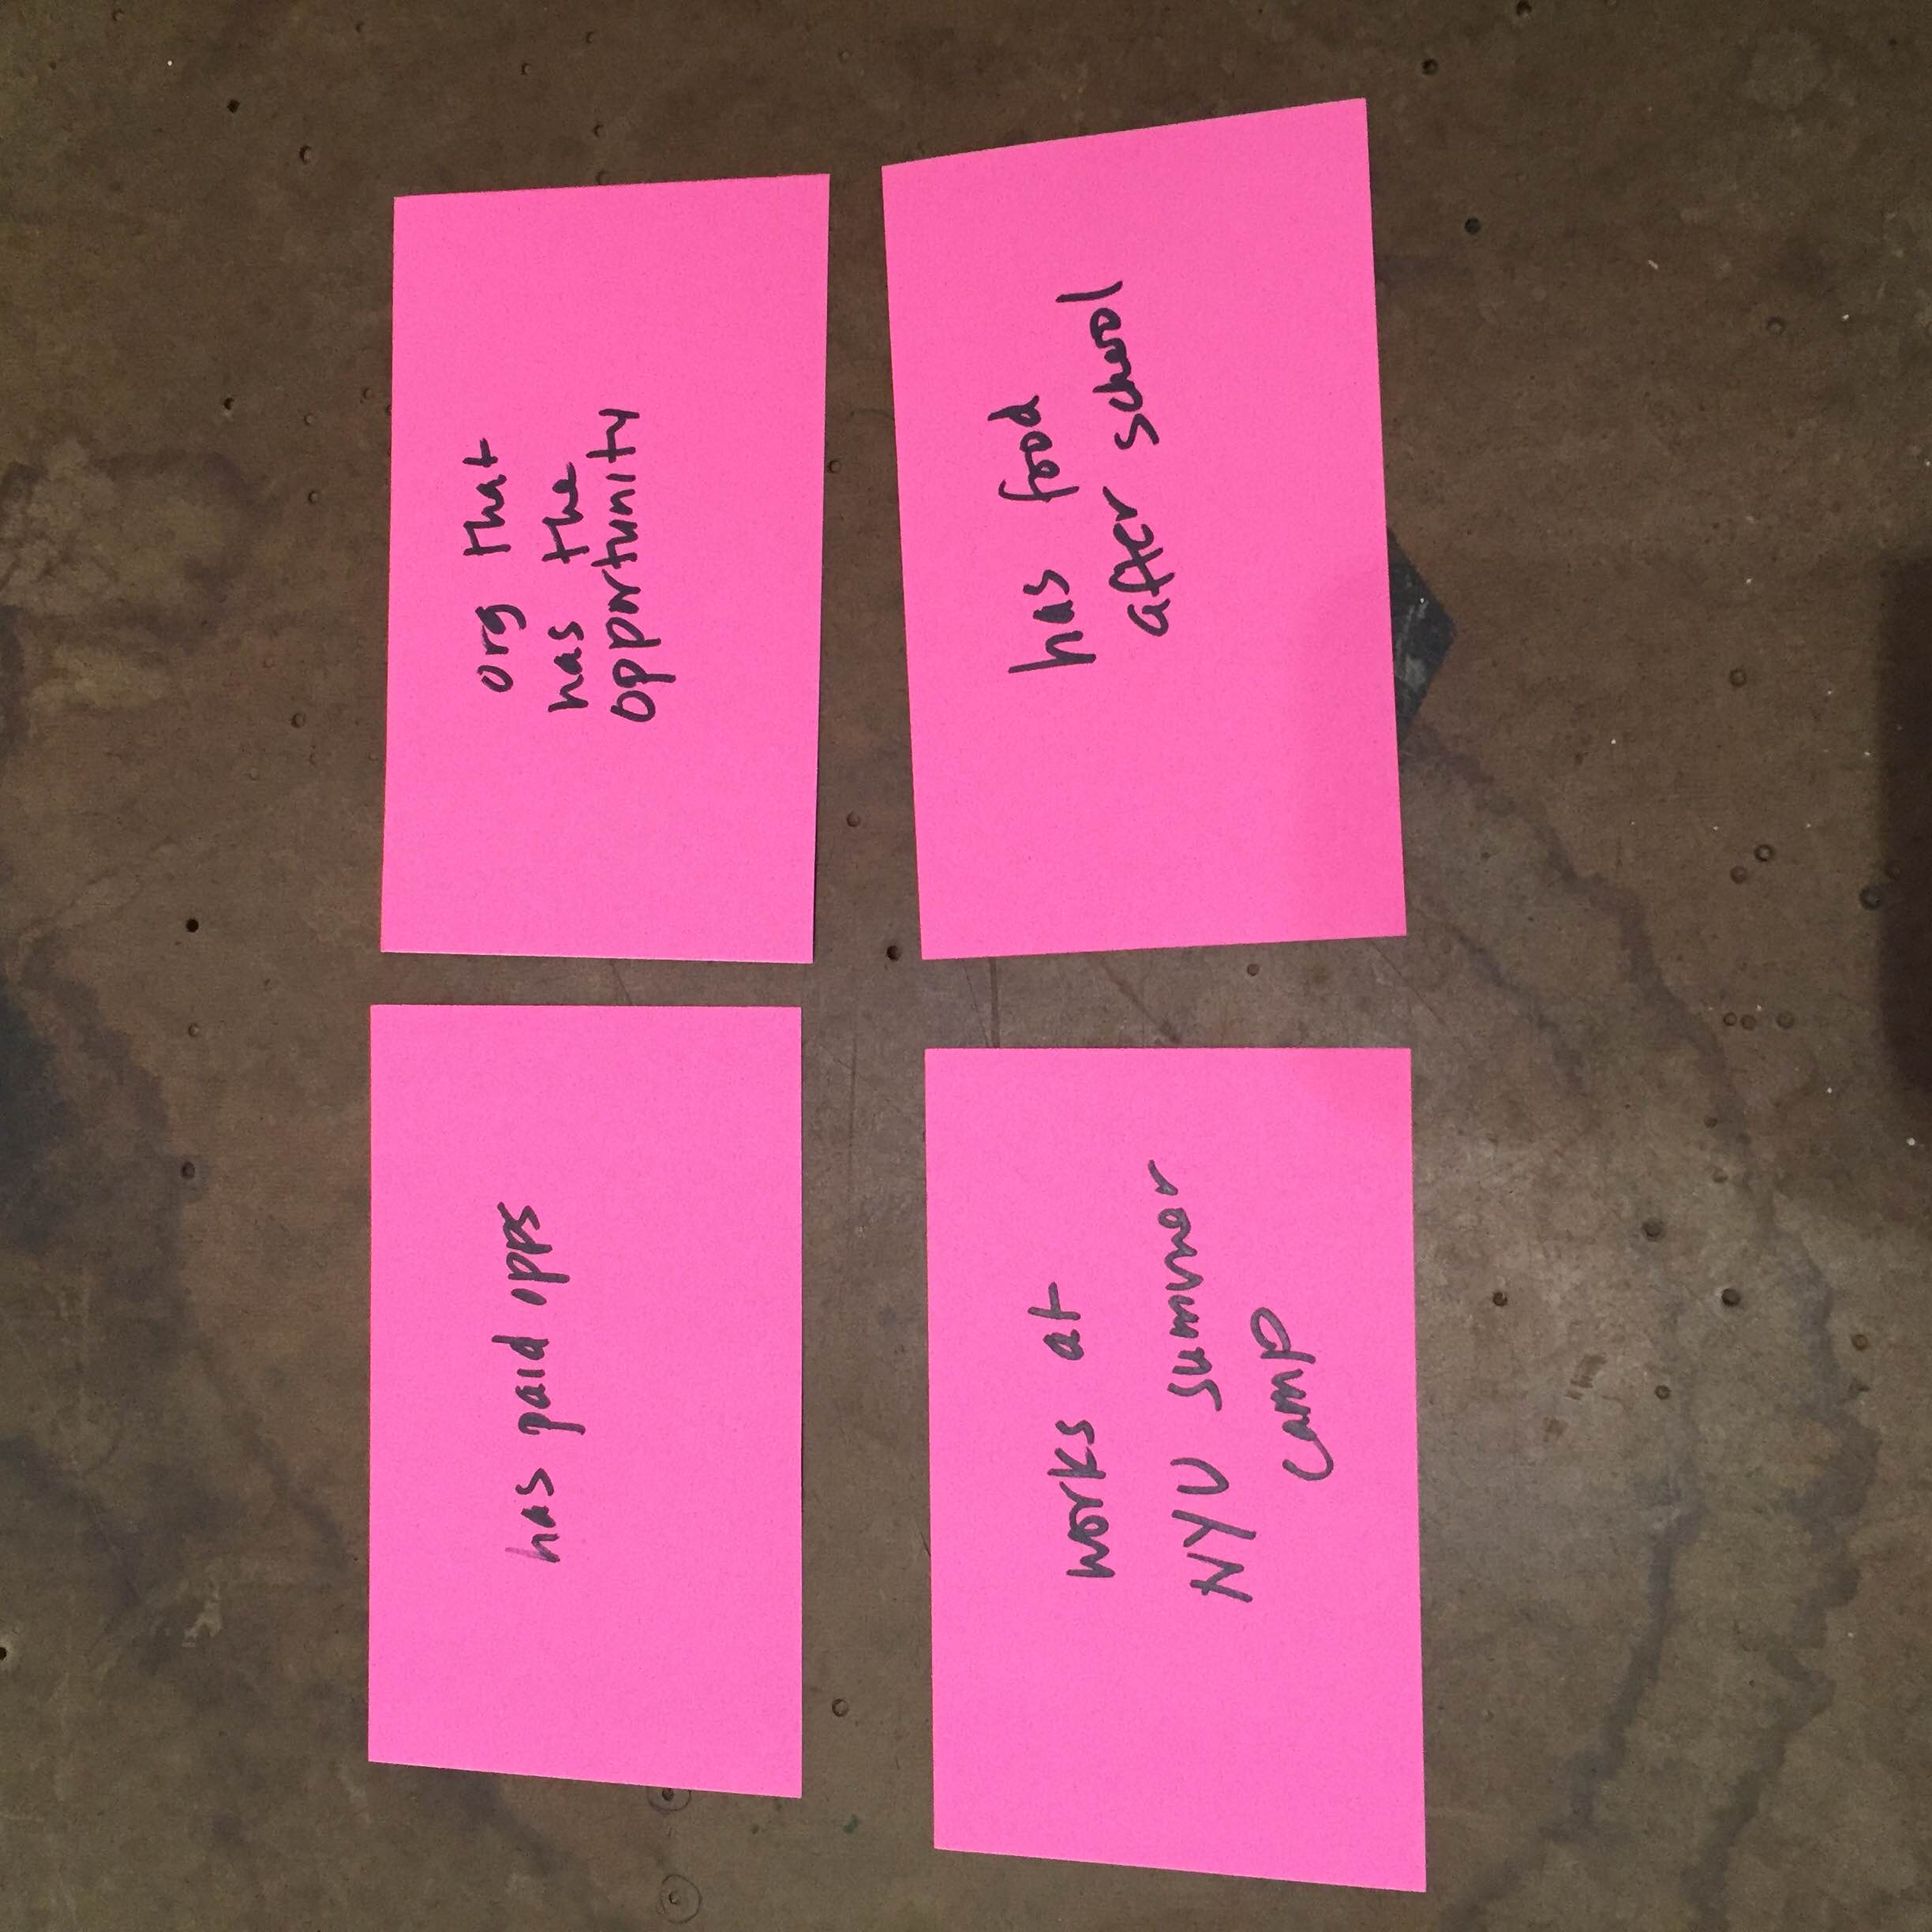 has paid opps
org that
has the
opportunity
works at
NYU summer
camp
has food
after school